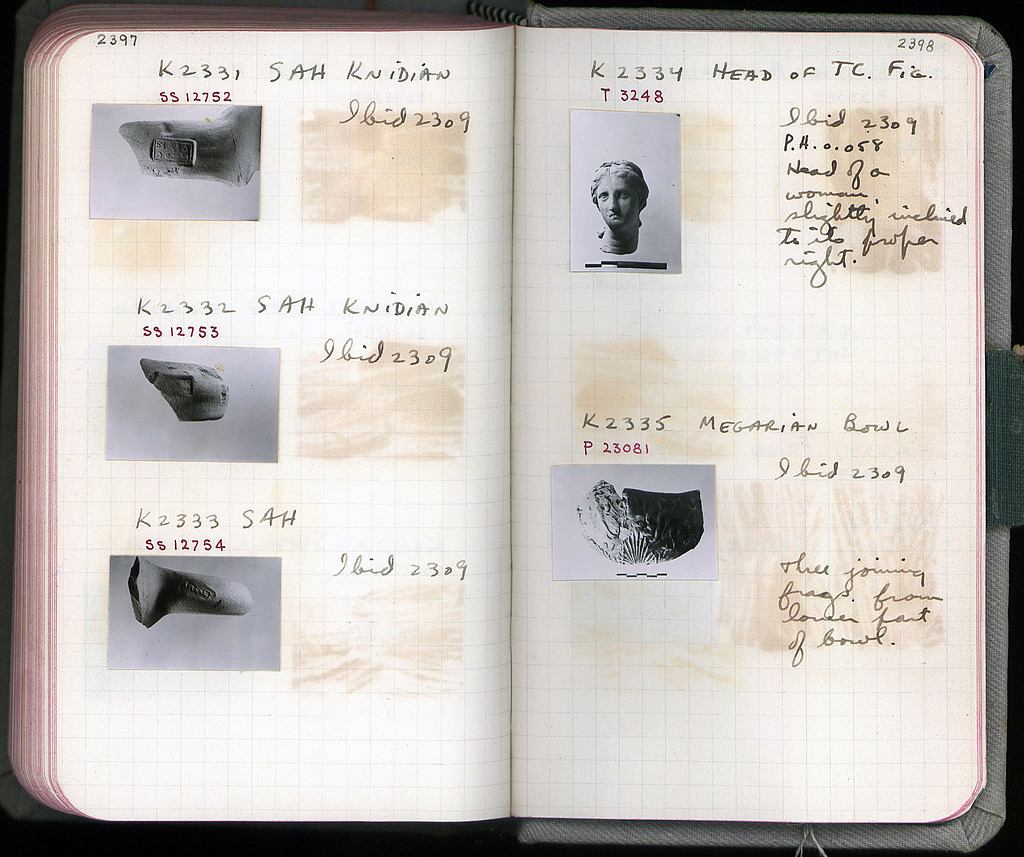 2397
K2331 SAH KNIDIAN
SS 12752
Ibid 2309
K2332 SAH KNIDIAN
SS 12753
Ibid 2309
K2333 SAH
SS 12754
Ibid 2309
2398
K 2334 HEAD OF TC. FIG.
T 3248
Ibid 2309
P.H. 0.058
Head of a
woman,
slightly inclined
to its proper
right.
K2335 MEGARIAN BOWL
P 23081
Ibid 2309
three joining
frags. from
lower part
of bowl.